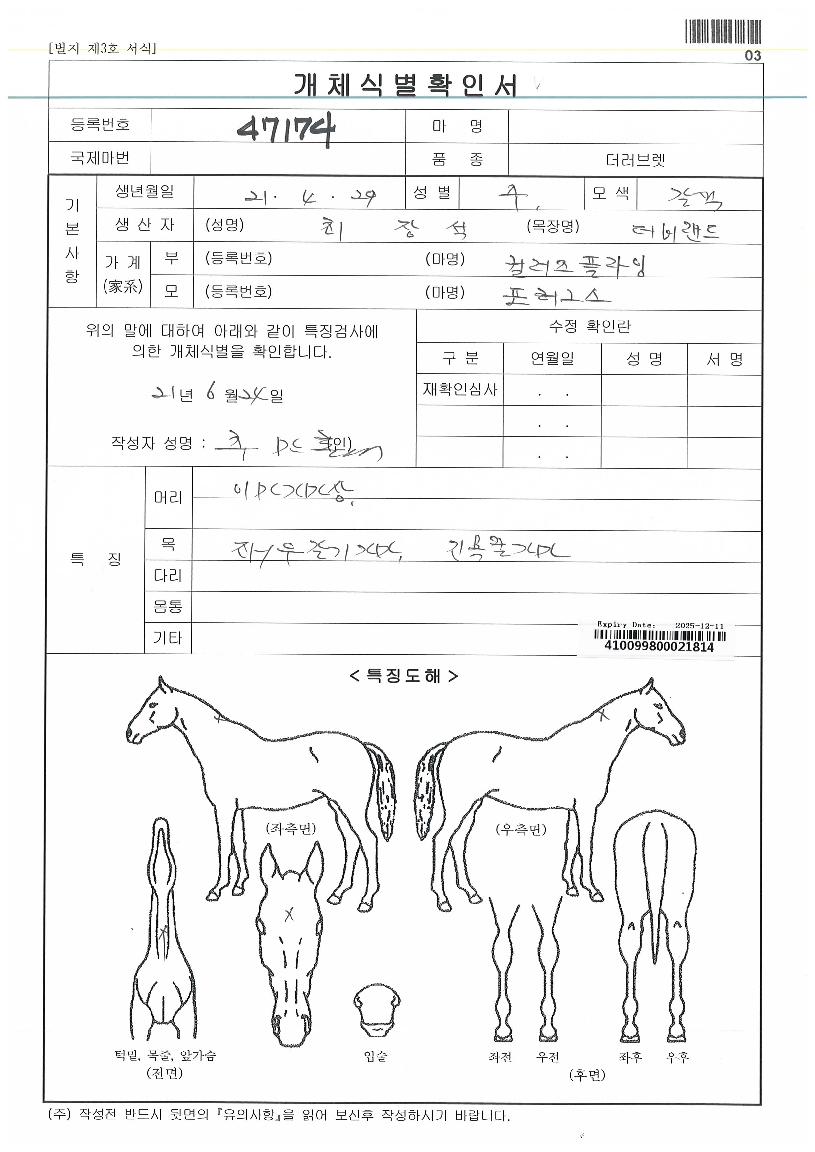 [별지 제3호 서식]
03
개체식별확인서
등록번호 47174 마 명
국제마번 품 종 더러브렛
기본사항
생년월일 21. 4. 29 성별 수 모색 갈색
생산자 (성명) 최 장 석 (목장명) 더버랜드
가계(家系) 부 (등록번호) (마명) 컬러즈플라잉
모 (등록번호) (마명)
위의 말에 대하여 아래와 같이 특징검사에
의한 개체식별을 확인합니다.
21년 6월 24일
작성자 성명 : (인)
수정 확인란
구 분 연월일 성 명 서 명
재확인심사 . .
. .
. .
특 징
머리
목
다리
몸통
기타
Expiry Date: 2025-12-11
410099800021814
< 특징도해 >
(좌측면) (우측면)
턱밑, 목줄, 앞가슴
(전면)
입술
좌전 우전 좌후 우후
(후면)
(주) 작성전 반드시 뒷면의 『유의사항』을 읽어 보신후 작성하시기 바랍니다.